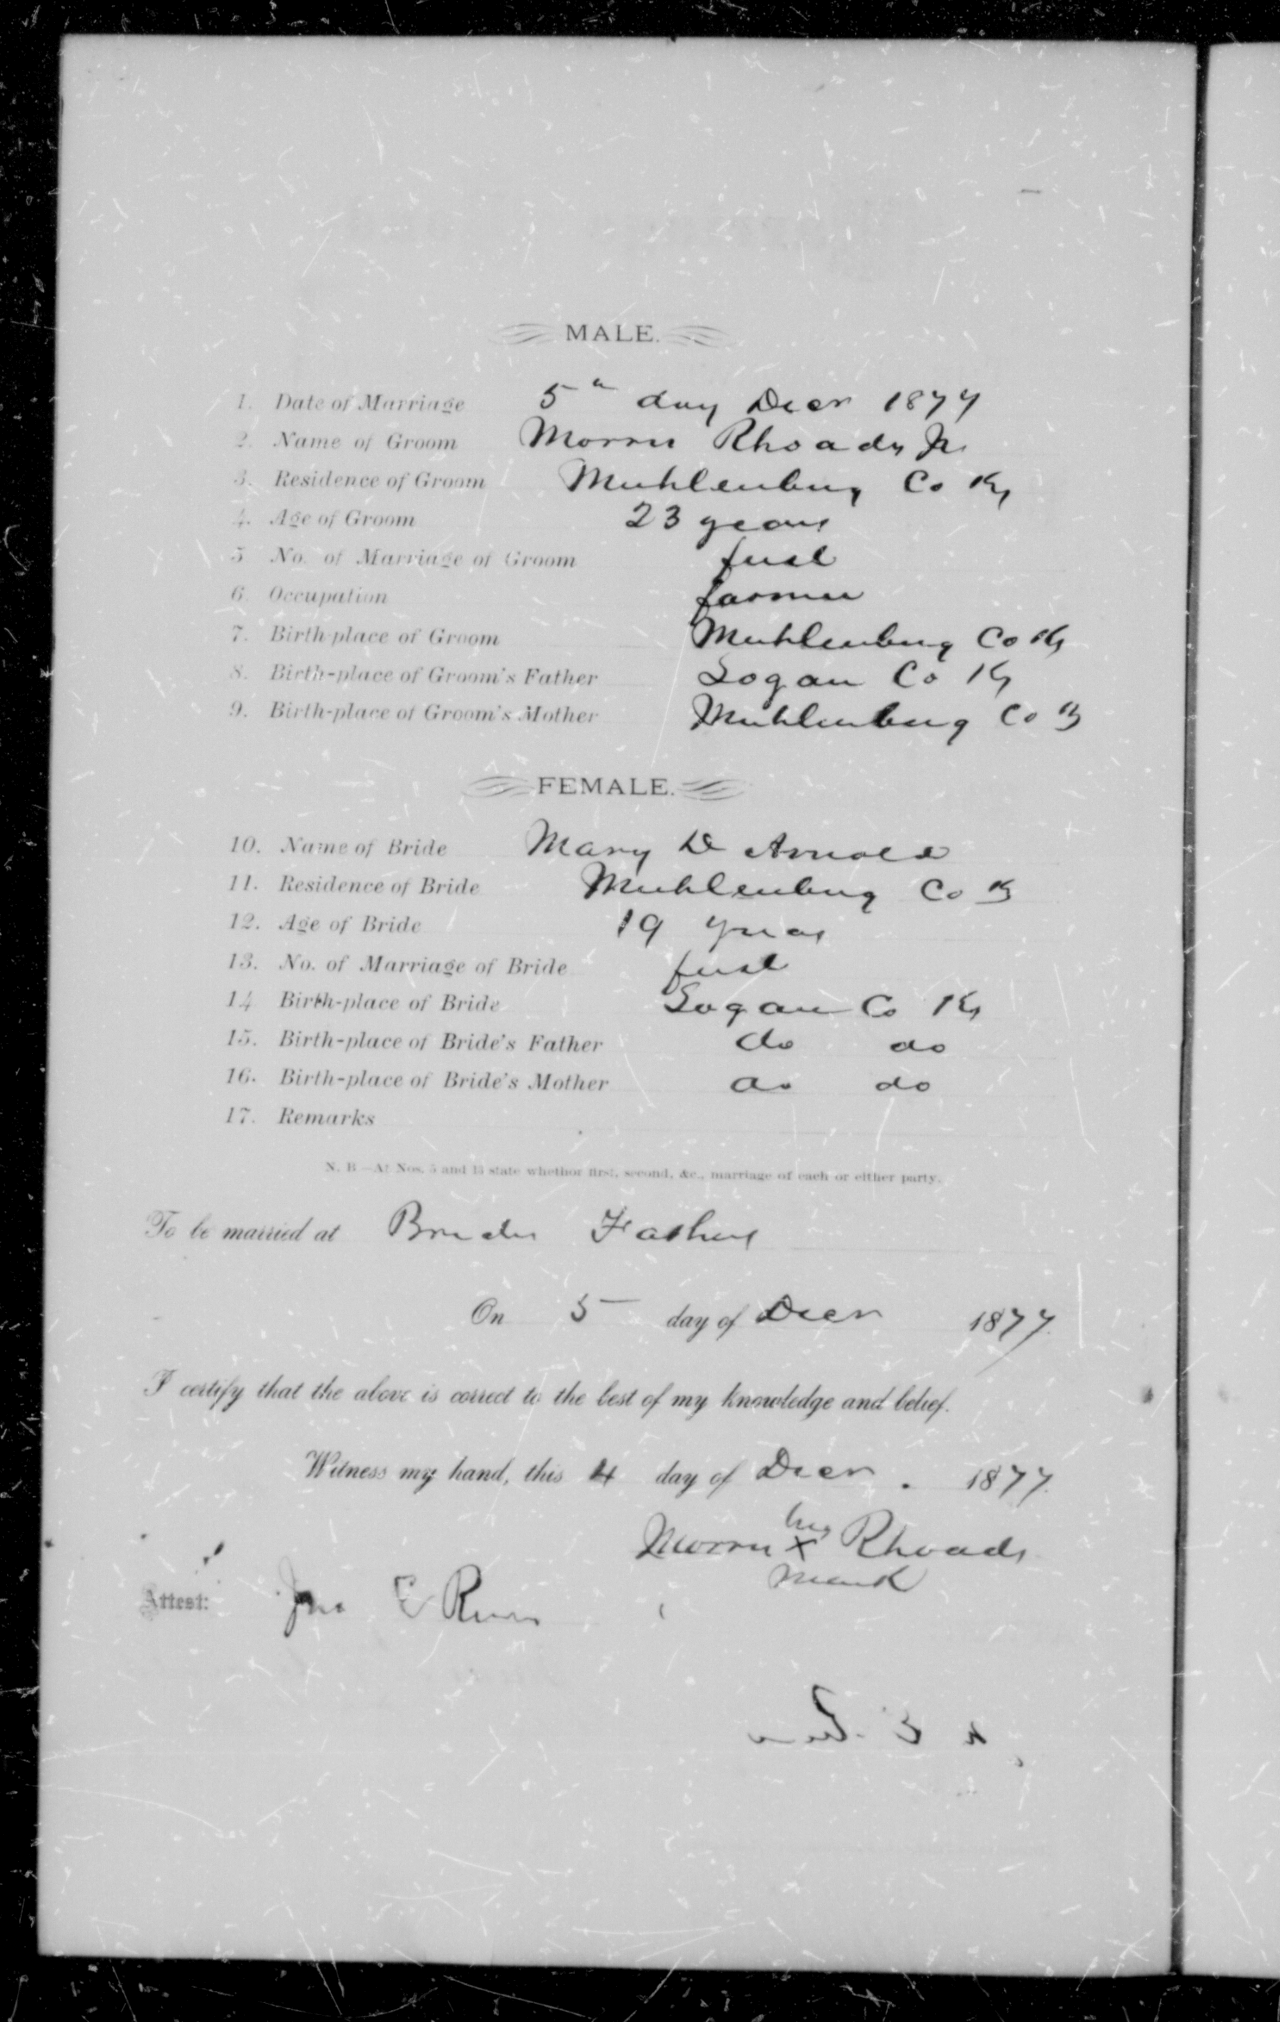 MALE.
1. Date of Marriage 5th day Decr 1877
2. Name of Groom Morris Rhoads Jr
3. Residence of Groom Muhlenburg Co Ky
4. Age of Groom 23 years
5 No. of Marriage of Groom first
6. Occupation farmer
7. Birth-place of Groom Muhlenburg Co Ky
8. Birth-place of Groom's Father Logan Co Ky
9. Birth-place of Groom's Mother Muhlenburg Co Ky
FEMALE.
10. Name of Bride Mary D Arnold
11. Residence of Bride Muhlenburg Co Ky
12. Age of Bride 19 years
13. No. of Marriage of Bride first
14 Birth-place of Bride Logan Co Ky
15. Birth-place of Bride's Father do do
16. Birth-place of Bride's Mother do do
17. Remarks
N. B.—At Nos. 5 and 13 state whether first, second, &c., marriage of each or either party.
To be married at Brides Fathers
On 5 day of Decr 1877.
I certify that the above is correct to the best of my knowledge and belief.
Witness my hand, this 4 day of Decr. 1877.
his
Morris X Rhoads
mark
Attest: Jno E